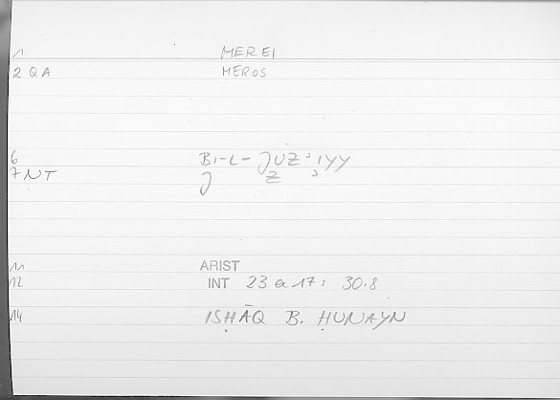 1 MEREI
2 QA MEROS
6 BI-L-JUZ'IYY
7 NT J Z '
11 ARIST
12 INT 23 a 17: 30.8
14 ISḤĀQ B. ḤUNAYN